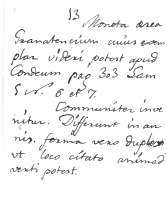 13
Moneta aerea
Granatensium cuius exem
plar videri potest apud
Condeum pag 303 Tam
5 N. 6 et 7.
Communiter inve
nitur. Different in an
nis. forma vero duplex
ut loco citato animad
verti potest.